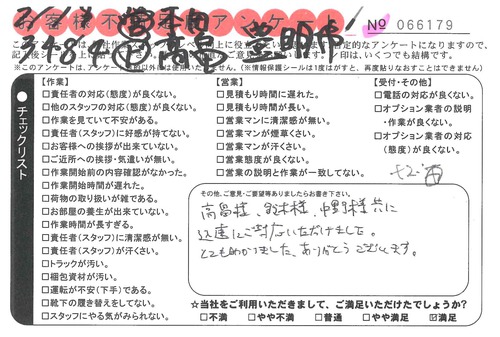 お客様不満足アンケート
№ 066179
チェックリスト
【作業】
□責任者の対応(態度)が良くない。
□他のスタッフの対応(態度)が良くない。
□作業を見ていて不安がある。
□責任者(スタッフ)に好感が持てない。
□お客様への挨拶が出来ていない。
□ご近所への挨拶・気遣いが無い。
□作業開始前の内容確認がなかった。
□作業開始時間が遅れた。
□荷物の取り扱いが雑である。
□お部屋の養生が出来ていない。
□作業時間が長すぎる。
□責任者(スタッフ)に清潔感が無い。
□責任者(スタッフ)が汗くさい。
□トラックが汚い。
□梱包資材が汚い。
□運転が不安(下手)である。
□靴下の履き替えをしてない。
□スタッフにやる気がみられない。
【営業】
□見積もり時間に遅れた。
□見積もり時間が長い。
□営業マンに清潔感が無い。
□営業マンが煙草くさい。
□営業マンが汗くさい。
□営業態度が良くない。
□営業の説明と作業が一致してない。
【受付・その他】
□電話の対応が良くない。
□オプション業者の説明
・作業が良くない。
□オプション業者の対応
(態度)が良くない。
その他、ご意見・ご要望等ありましたらお書き下さい。
高畠様、鈴木様、中野様共に
迅速にご対応いただけました。
とても助かりました、ありがとうございます。
☆当社をご利用いただきまして、ご満足いただけたでしょうか?
□不満 □やや不満 □普通 □やや満足 ☑満足